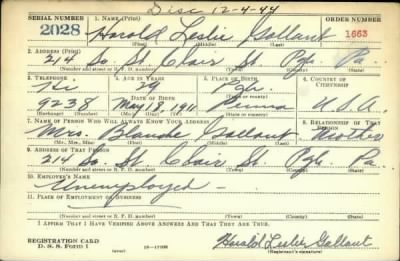 Disc 12-4-44
SERIAL NUMBER 1. NAME (Print) ORDER NUMBER
2028 Harold Leslie Gallant 1663
(First) (Middle) (Last)
2. ADDRESS (Print)
214 So. St. Clair St. Pgh. Pa.
(Number and street or R. F. D. number) (Town) (County) (State)
3. TELEPHONE 4. AGE IN YEARS 5. PLACE OF BIRTH 6. COUNTRY OF CITIZENSHIP
29 Pgh.
9238 DATE OF BIRTH
May 18, 1911 Penna U.S.A.
(Exchange) (Number) (Mo.) (Day) (Yr.) (State or country)
7. NAME OF PERSON WHO WILL ALWAYS KNOW YOUR ADDRESS 8. RELATIONSHIP OF THAT PERSON
Mrs. Blanche Gallant Mother
(Mr., Mrs., Miss) (First) (Middle) (Last)
9. ADDRESS OF THAT PERSON
214 So. St. Clair St. Pgh. Pa.
(Number and street or R. F. D. number) (Town) (County) (State)
10. EMPLOYER'S NAME
Unemployed -
11. PLACE OF EMPLOYMENT OR BUSINESS
(Number and street or R. F. D. number) (Town) (County) (State)
I AFFIRM THAT I HAVE VERIFIED ABOVE ANSWERS AND THAT THEY ARE TRUE.
REGISTRATION CARD
D. S. S. Form 1 (over) Harold Leslie Gallant
(Registrant's signature)